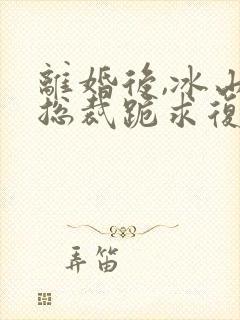 離婚後,冰山
總裁跪求復
弄笛